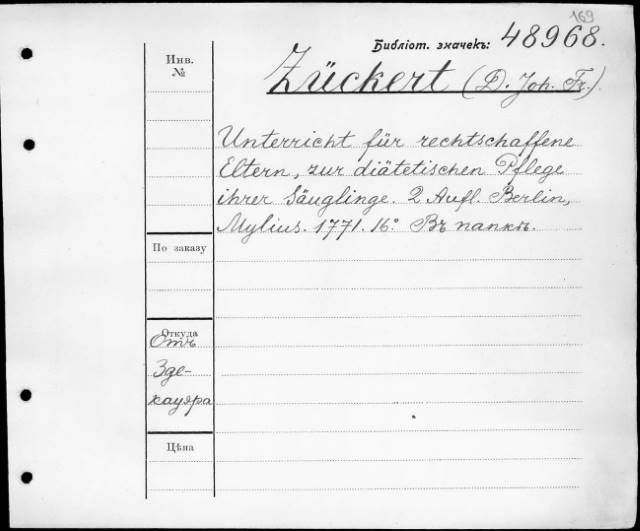 169
Библіот. значекъ: 48968.
Инв.
№
Zückert (D. Joh. Fr.)
Unterricht für rechtschaffene
Eltern, zur diätetischen Pflege
ihrer Säuglinge. 2 Aufl. Berlin,
Mylius. 1771. 16º. Въ папкѣ.
По заказу
Откуда
Отъ
Зде-
кауэра
Цѣна